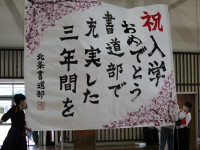 祝入学
おめでとう
書道部で
充実した
三年間を
北条書道部